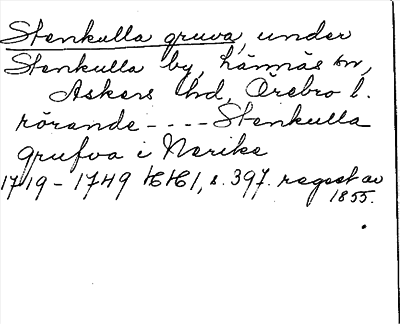 Stenkulla gruva, under
Stenkulla by, Lännäs sn,
Askers hd, Örebro l.
rörande - - - - Stenkulla
grufva i Nerike
1719-1749 HH1, s. 397. regest av
1855.